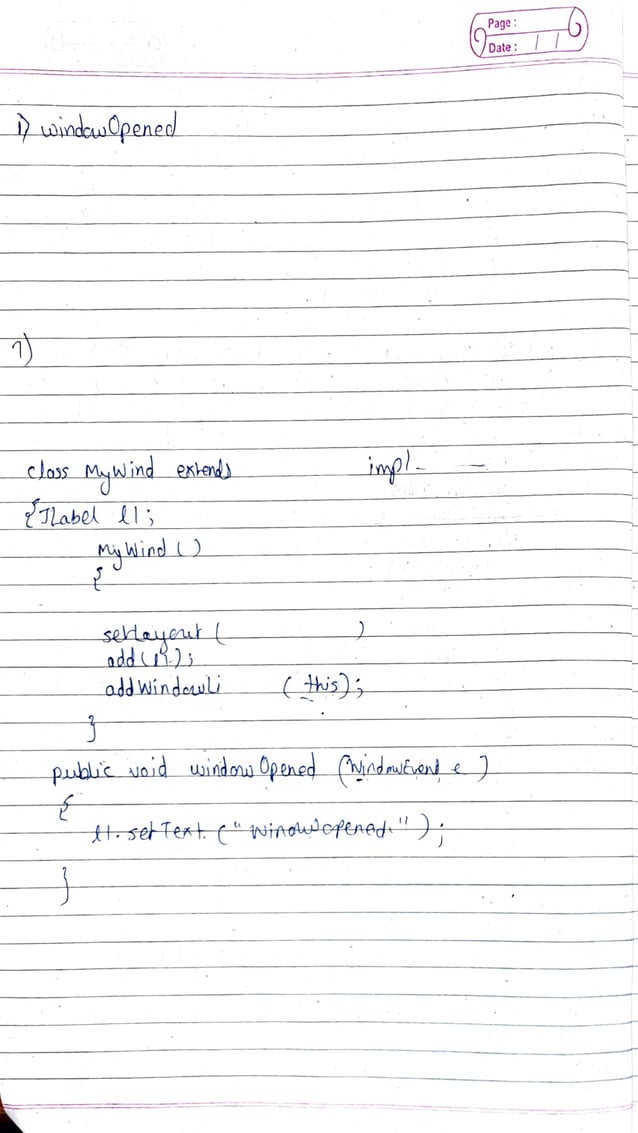 Page :
Date : / /
1) windowOpened
7)
class MyWind extends impl- —
{JLabel l1;
MyWind ()
{
setLayout ( )
add(l1);
addWindowLi (this);
}
public void windowOpened (WindowEvent e )
{
l1.setText.("Windowopened.");
}